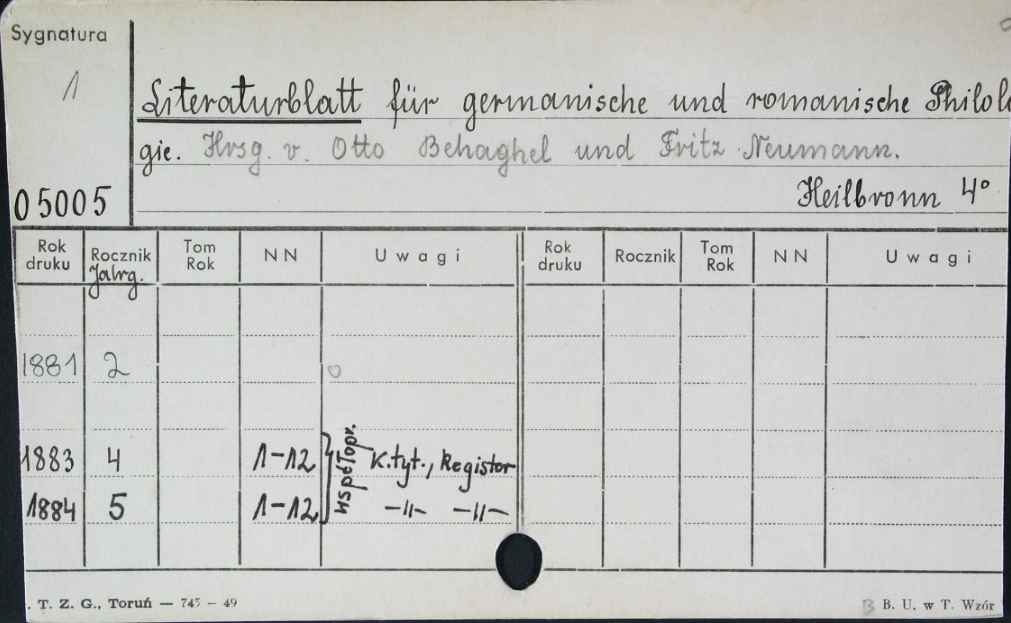 Sygnatura
1
Literaturblatt für germanische und romanische Philolo
gie. Hrsg. v. Otto Behaghel und Fritz Neumann.
Heilbronn 4°
05005
Rok druku Rocznik Tom Rok NN Uwagi Rok druku Rocznik Tom Rok NN Uwagi
Jahrg.
1881 2 0
1883 4 1-12 współopr. K.tyt., Register
1884 5 1-12 -"- -"-
. T. Z. G., Toruń — 745 - 49
B B. U. w T. Wzór